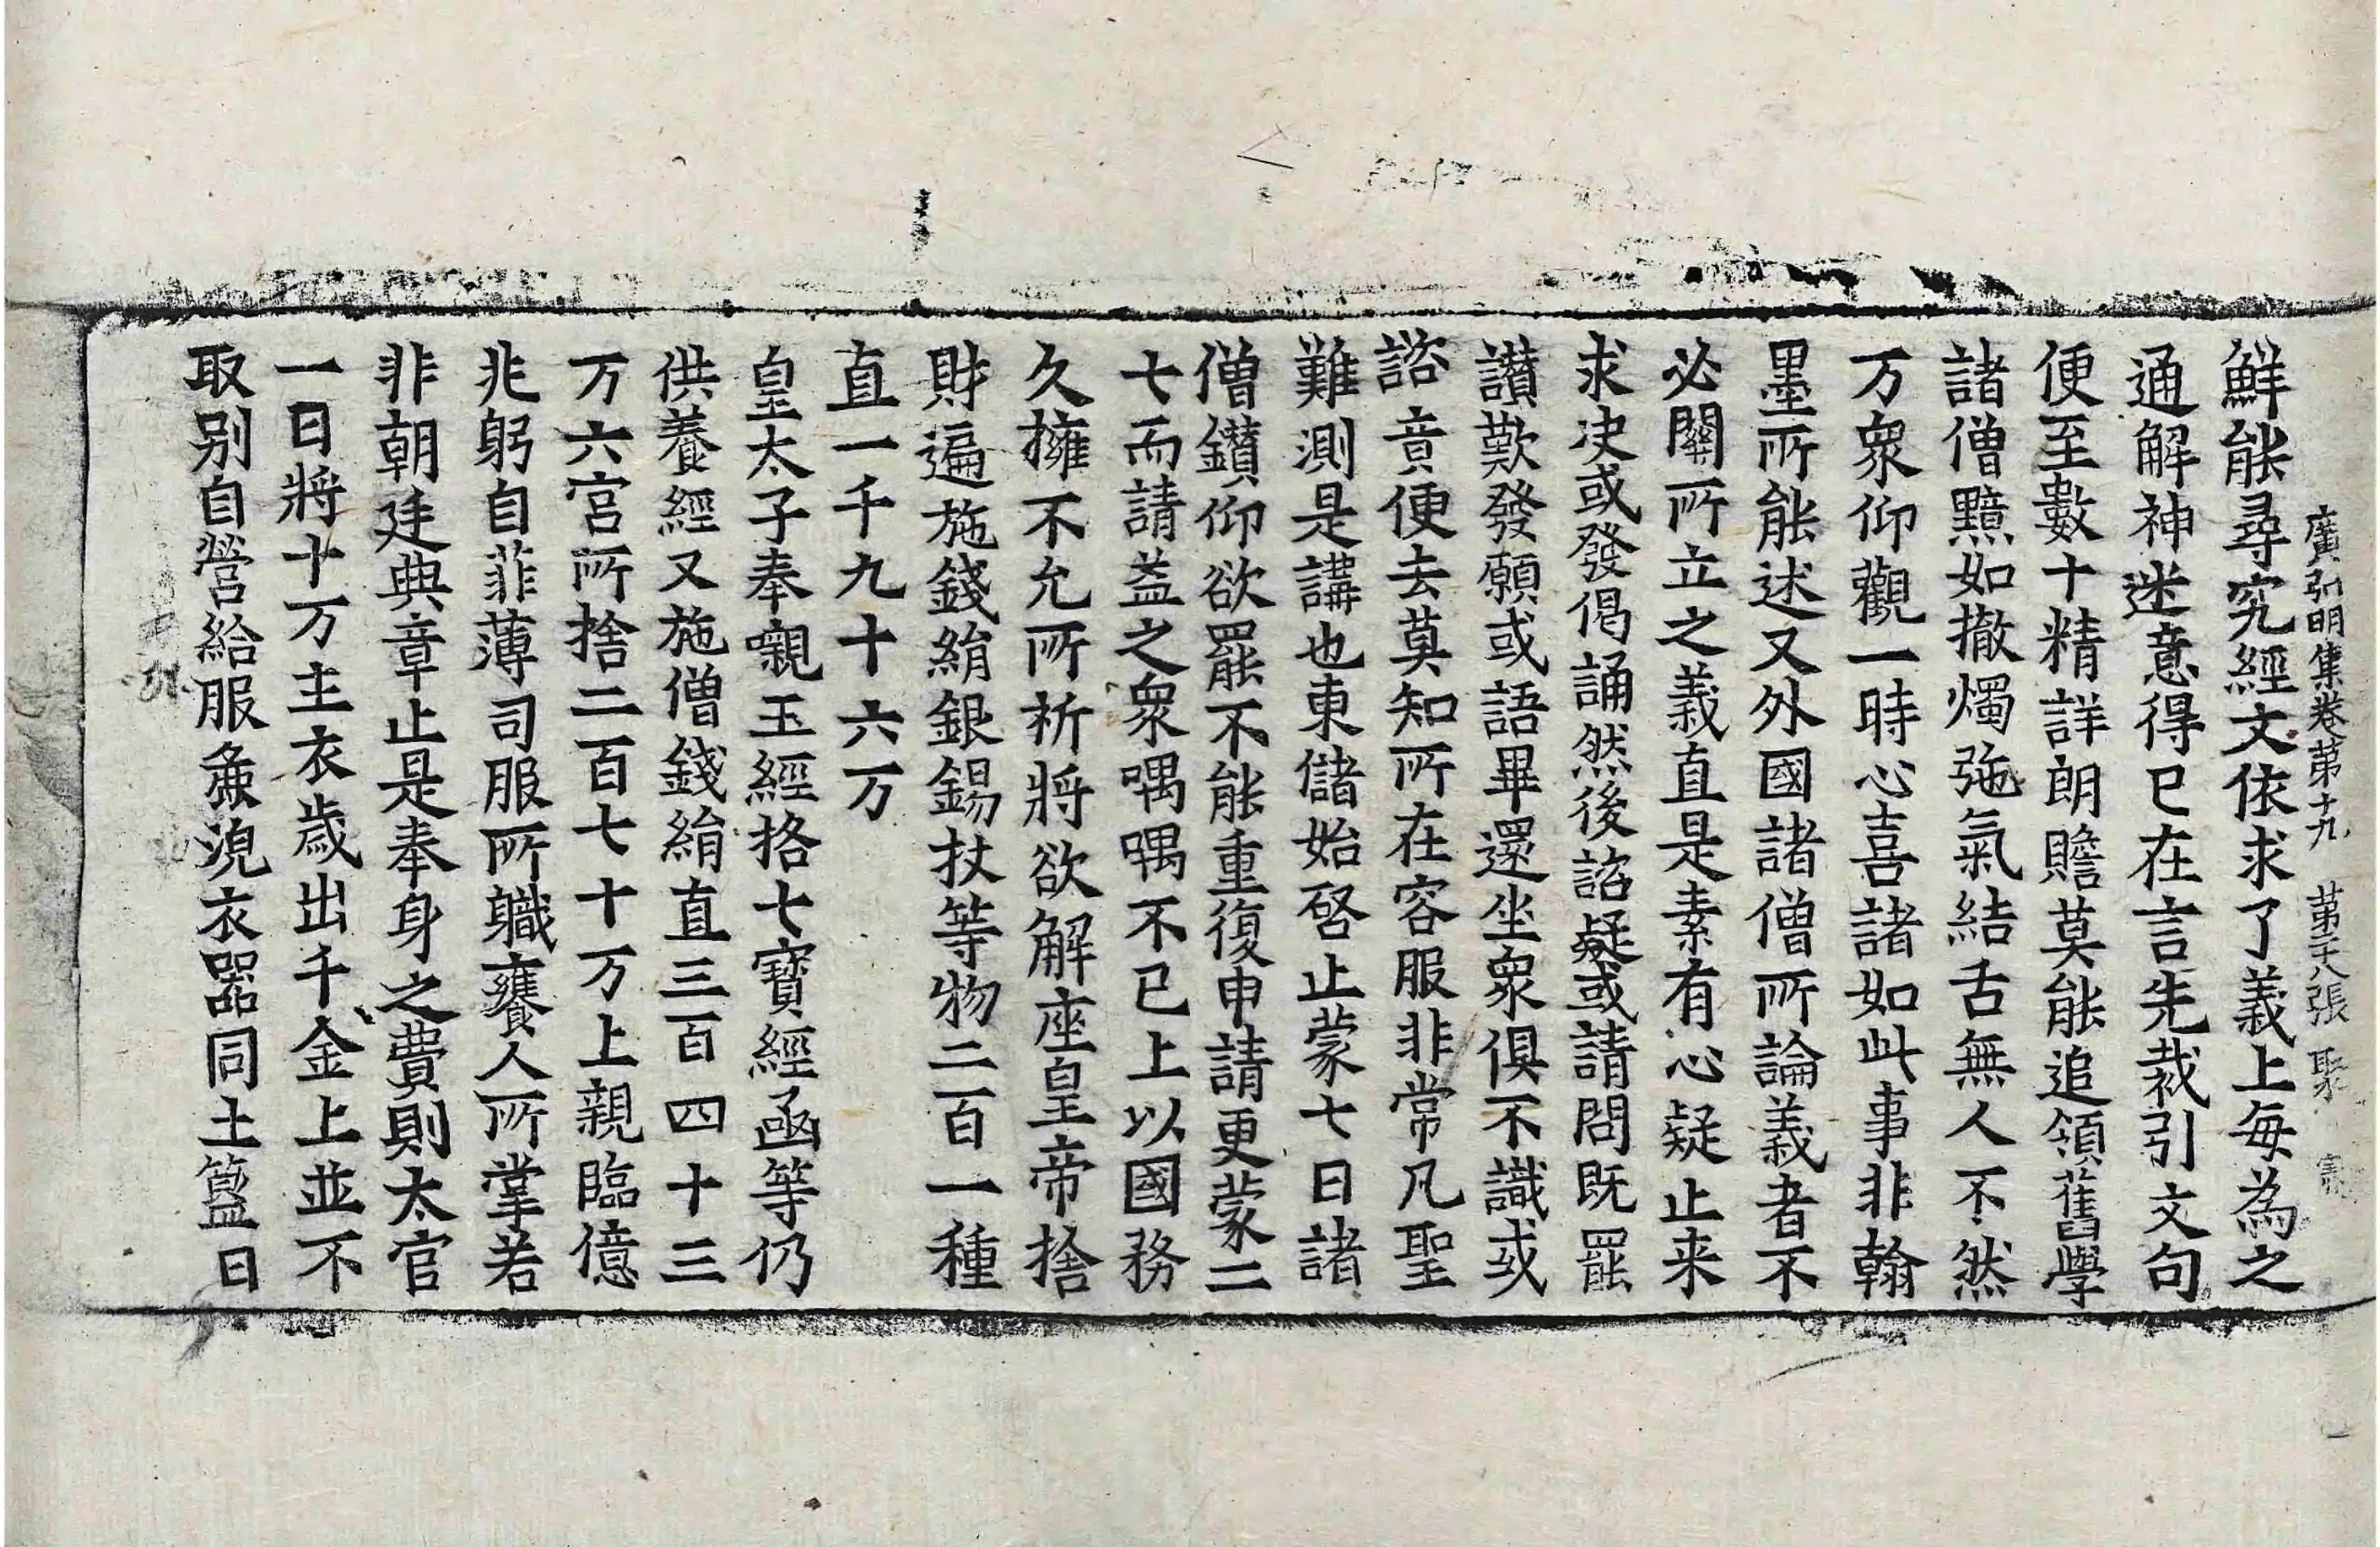 廣弘明集卷第十九 第二十八張 聚
鮮能尋究經文依求了義上每為之
通解神迷意得已在言先裁引文句
便至數十精詳朗贍莫能追領舊學
諸僧黯如撤燭弛氣結舌無人不然
万衆仰觀一時心喜諸如此事非翰
墨所能述又外國諸僧所論義者不
必關所立之義直是素有心疑止来
求决或發偈誦然後諮疑或請問既罷
讃歎發願或語畢還坐衆俱不識或
諮竟便去莫知所在容服非常凡聖
難測是講也東儲始啓止蒙七日諸
僧鑚仰欲罷不能重復申請更蒙二
七而請益之衆喁喁不已上以國務
久擁不允所祈將欲解座皇帝捨
財遍施錢絹銀錫杖等物二百一種
直一千九十六万
皇太子奉嚫玉經格七寶經函等仍
供養經又施僧錢絹直三百四十三
万六宮所捨二百七十万上親臨億
兆躬自菲薄司服所職饔人所掌若
非朝廷典章止是奉身之費則太官
一日將十万主衣歲出千金上並不
取別自營給服兼浣衣器同土簋日